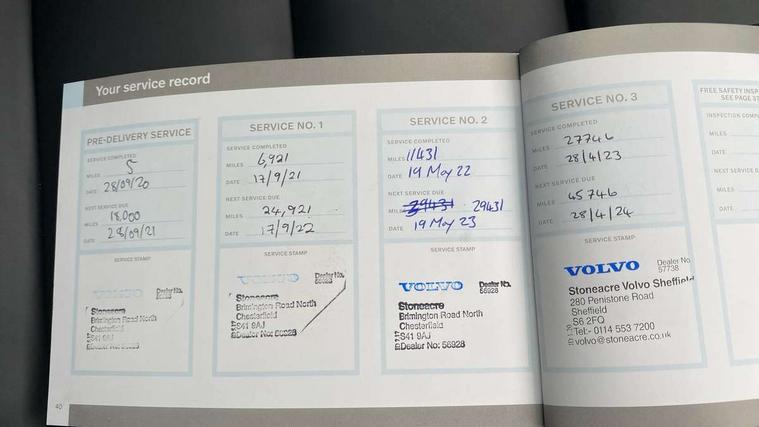 Your service record
PRE-DELIVERY SERVICE
SERVICE COMPLETED
MILES 5
DATE 28/09/20
NEXT SERVICE DUE
MILES 18,000
DATE 28/09/21
SERVICE STAMP
VOLVO
Dealer No.
Stoneacre
Brimington Road North
Chesterfield
S41 9AJ
SERVICE NO. 1
SERVICE COMPLETED
MILES 6,921
DATE 17/9/21
NEXT SERVICE DUE
MILES 24,921
DATE 17/9/22
SERVICE STAMP
VOLVO
Dealer No.
56928
Stoneacre
Brimington Road North
Chesterfield
S41 9AJ
Dealer No: 56928
SERVICE NO. 2
SERVICE COMPLETED
MILES 11431
DATE 19 May 22
NEXT SERVICE DUE
MILES 29431 29431
DATE 19 May 23
SERVICE STAMP
VOLVO
Dealer No.
56928
Stoneacre
Brimington Road North
Chesterfield
S41 9AJ
Dealer No: 56928
SERVICE NO. 3
SERVICE COMPLETED
MILES 27746
DATE 28/4/23
NEXT SERVICE DUE
MILES 45746
DATE 28/4/24
SERVICE STAMP
VOLVO
Dealer No
57738
Stoneacre Volvo Sheffield
280 Penistone Road
Sheffield
S6 2FQ
Tel:- 0114 553 7200
volvo@stoneacre.co.uk
FREE SAFETY INSP
SEE PAGE 37
INSPECTION COMP
MILES
DATE
NEXT SERVICE D
MILES
DATE
40